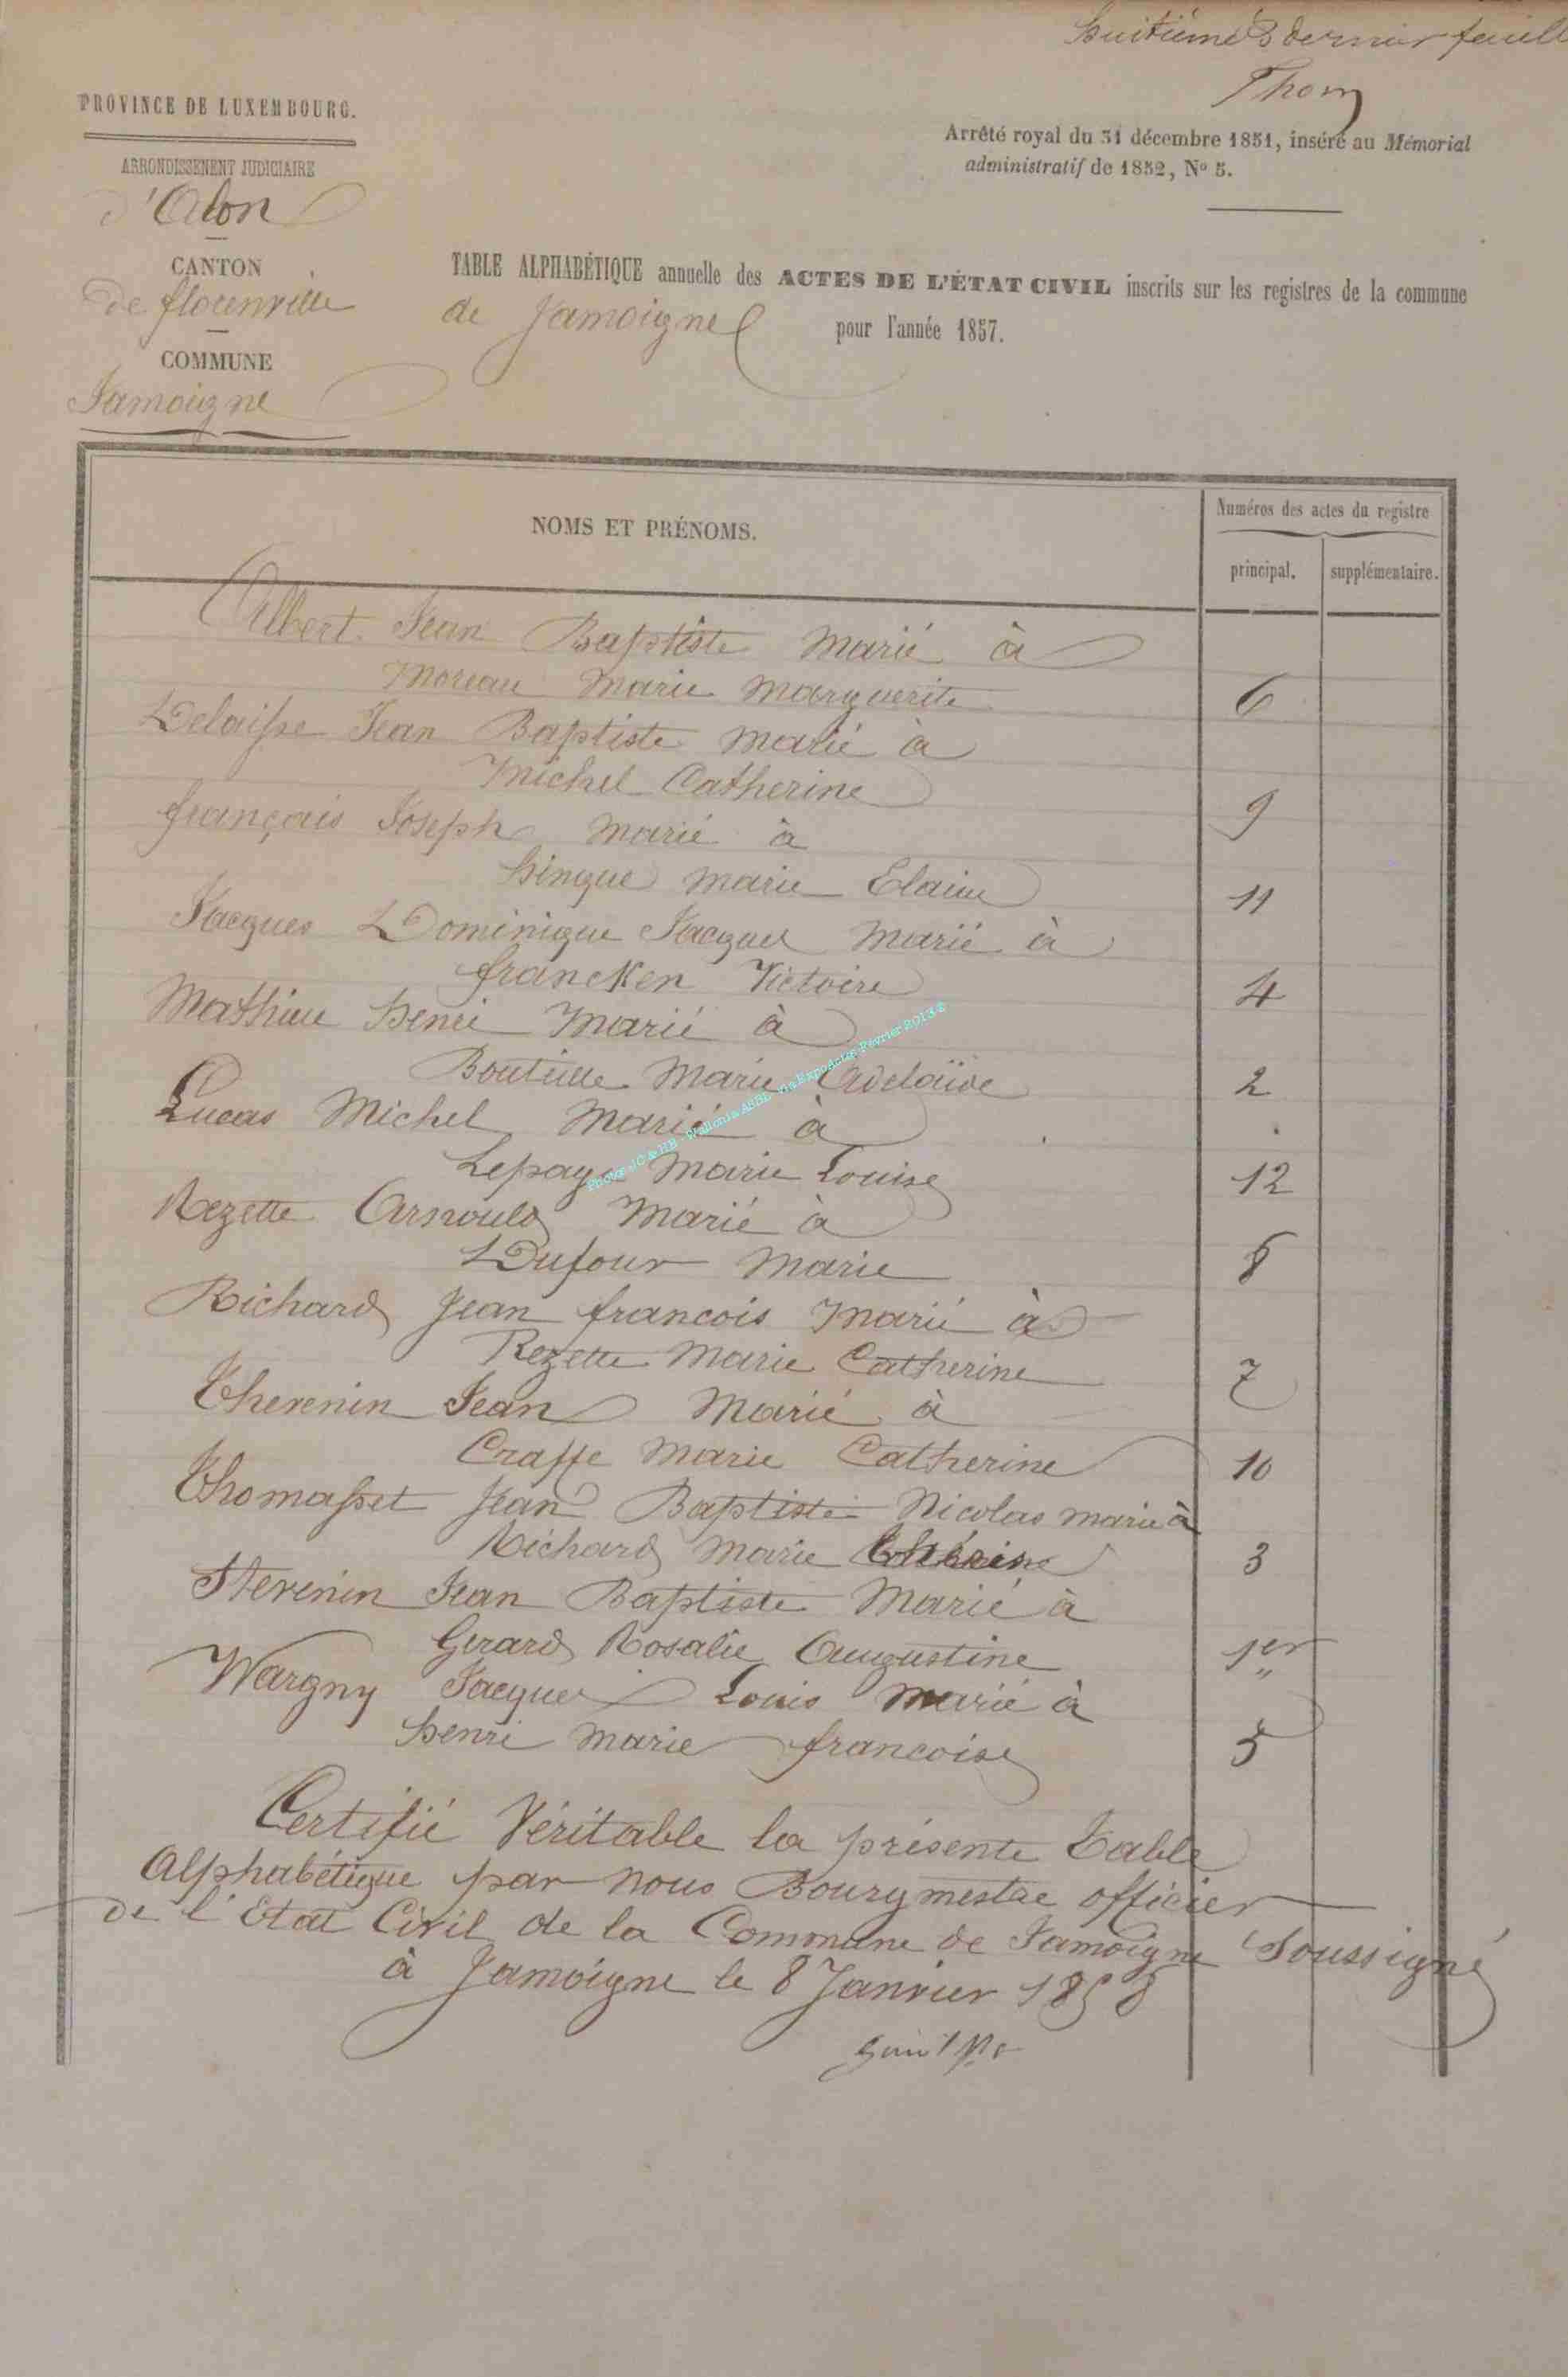 huitième & dernier feuill
Thom
PROVINCE DE LUXEMBOURG.
Arrêté royal du 31 décembre 1851, inséré au Mémorial
administratif de 1852, No 5.
ARRONDISSEMENT JUDICIAIRE
d'Alon
CANTON
de florenville
TABLE ALPHABÉTIQUE annuelle des ACTES DE L'ÉTAT CIVIL inscrits sur les registres de la commune
de Jamoigne pour l'année 1857.
COMMUNE
Jamoigne
NOMS ET PRÉNOMS.
Numéros des actes du registre
principal. supplémentaire.
Albert Jean Baptiste Marié à
Moreau Marie Marguerite 6
Delaisse Jean Baptiste Marié à
Michel Catherine 9
françois Joseph Marié à
hingue Marie 11
Jacques Dominique Jacques Marié à
francken Victoire 4
Mathieu henri Marié à
Bouteille Marie Adelaïde 2
Lucas Michel Marié à
Lepage Marie Louise 12
Rezette Arnould Marié à
Dufour Marie 8
Richard Jean francois Marié à
Rezette Marie Catherine 7
Thevenin Jean Marié à
Crasse Marie Catherine 10
Thomasset Jean Baptiste Nicolas marié à
Richard Marie 3
Stevenin Jean Baptiste Marié à
Gerard Rosalie Augustine 1er
Wargny Jacques Louis Marié à
henri Marie francoise 5
Certifié Véritable la présente Table
Alphabétique par nous Bourgmestre officier
de l'Etat Civil de la Commune de Jamoigne Soussigné
à Jamoigne le 8 Janvier 1858
Photos JC & HB - Wallonia ASBL via ExpoActes Février 2013 ©